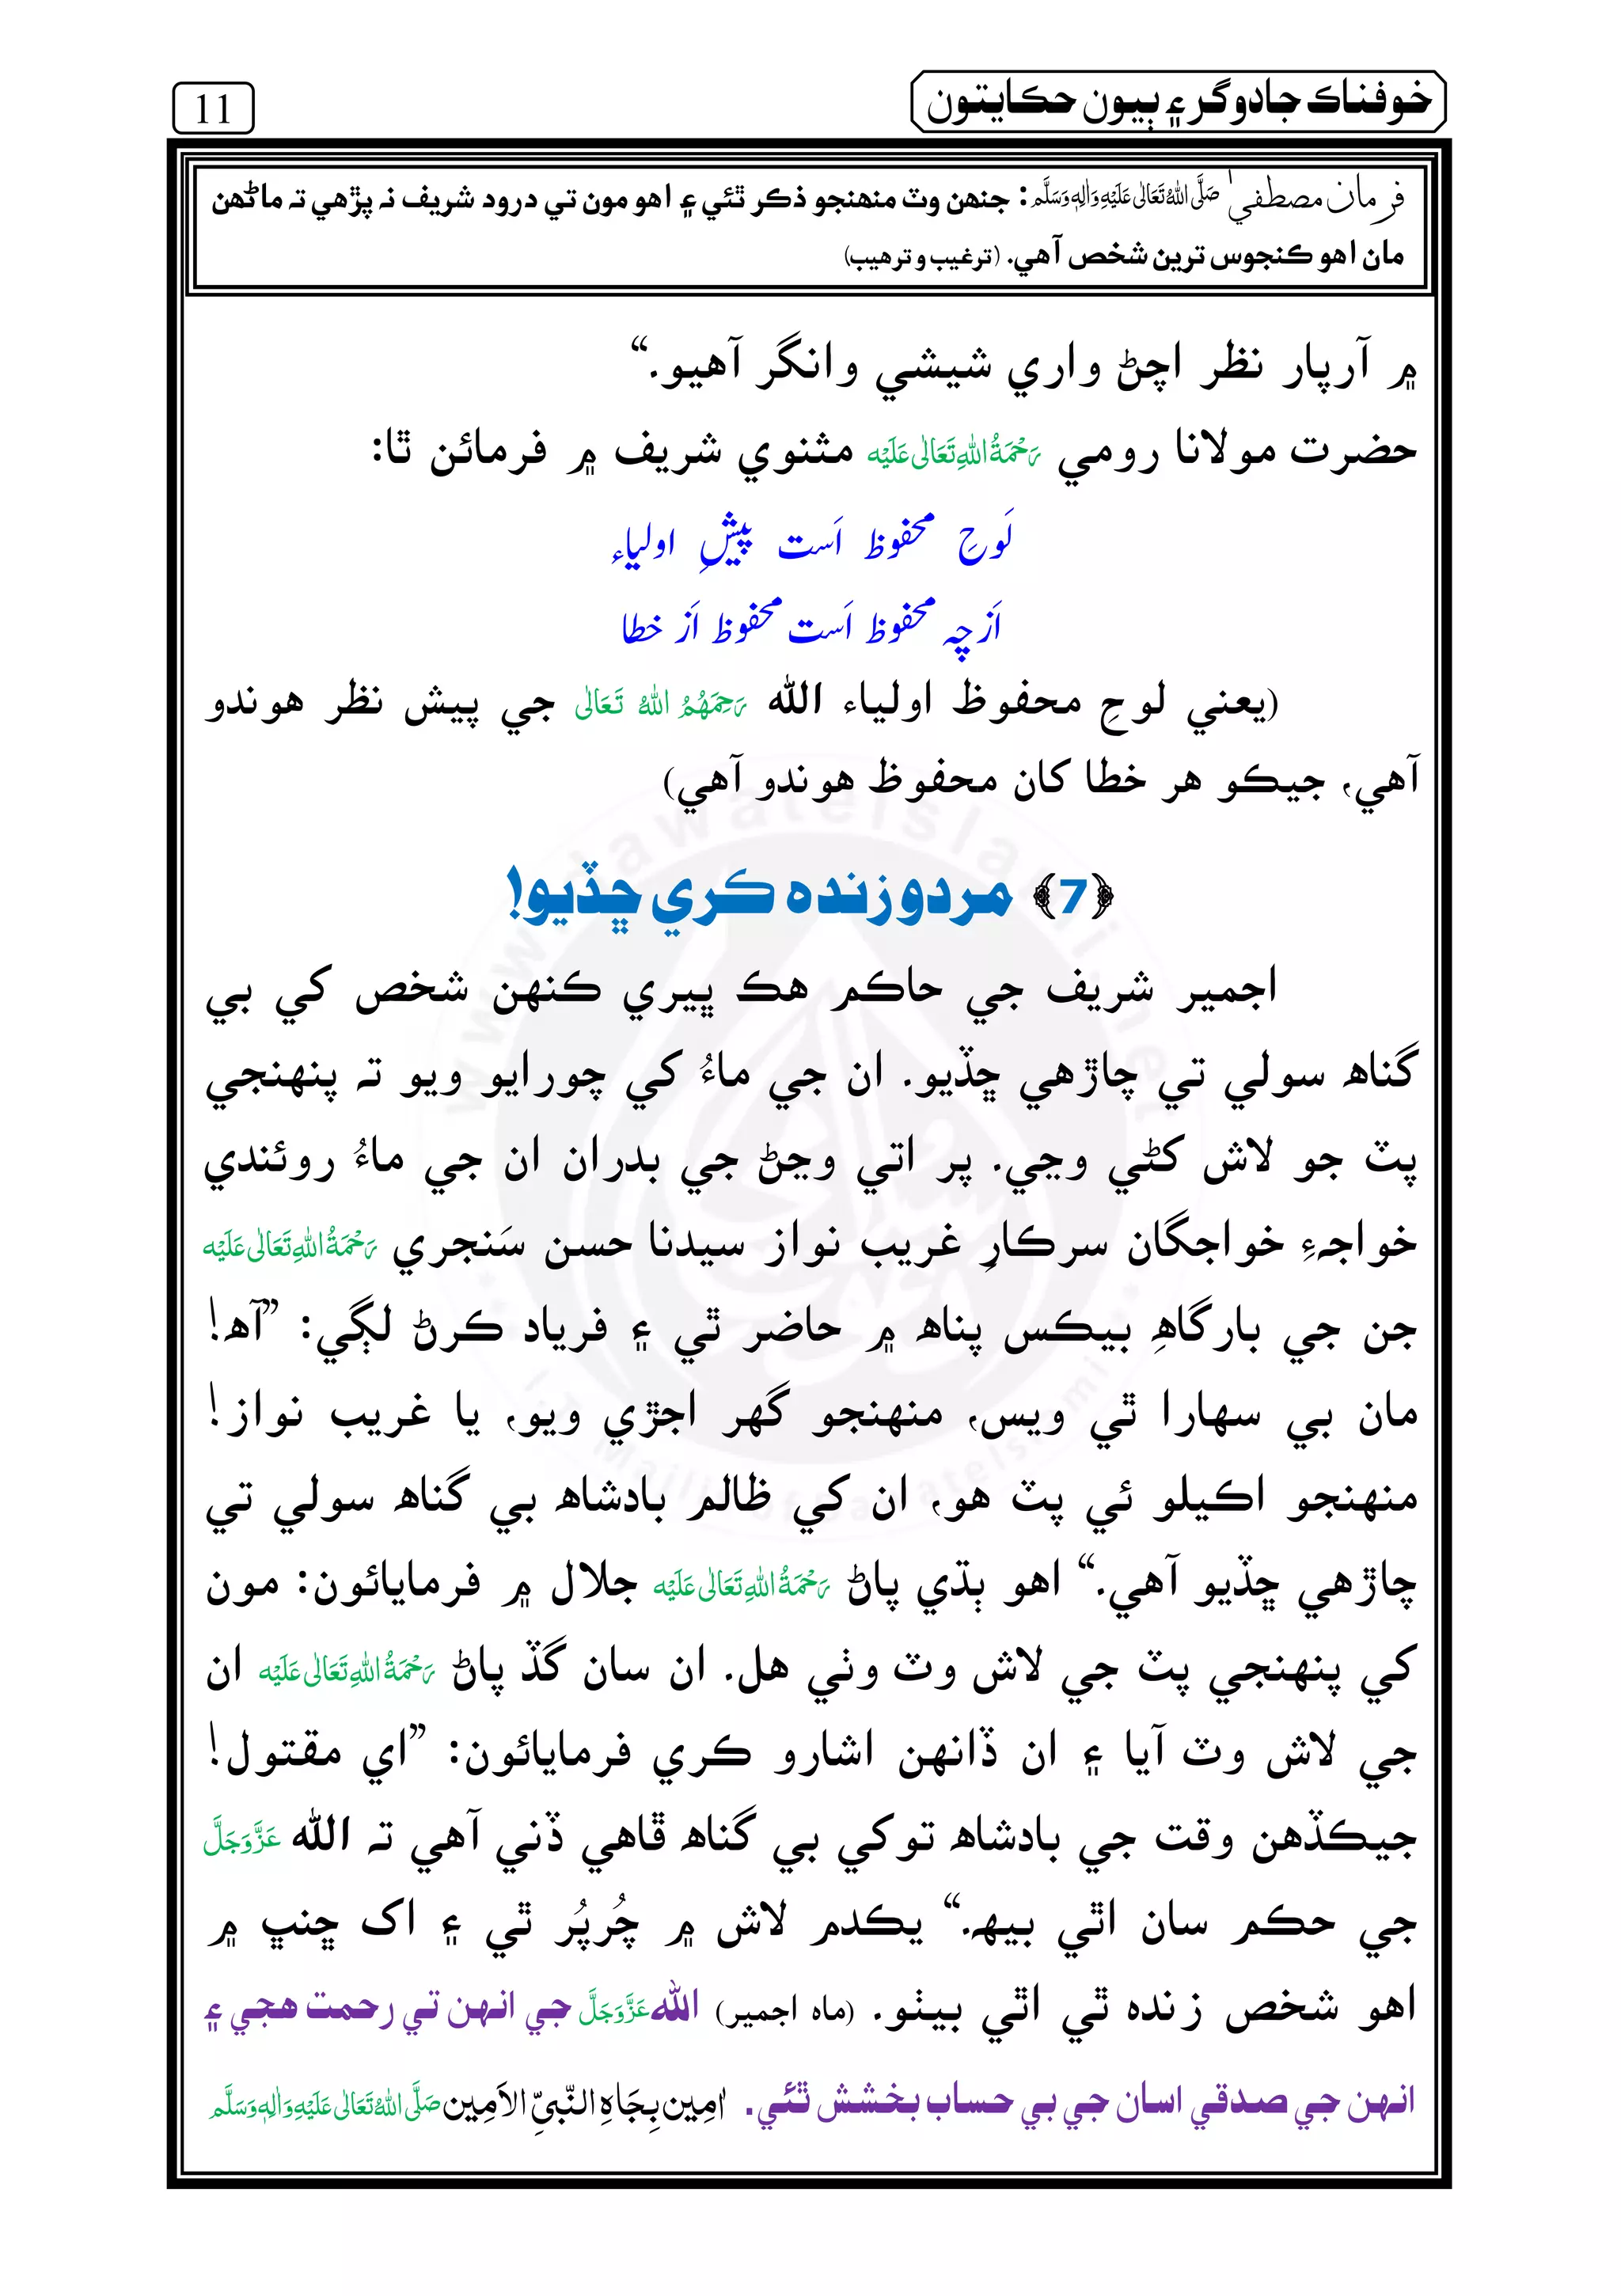 خوفناڪ جادوگر ۽ ٻيون حڪايتون
11
فرمانِ مصطفيٰ صَلَّى اللهُ تَعَالٰى عَلَيْهِ وَاٰلِهٖ وَسَلَّم: جنهن وٽ منهنجو ذڪر ٿئي ۽ اهو مون تي درود شريف نہ پڙهي تہ ماڻهن
مان اهو ڪنجوس ترين شخص آهي. (ترغيب و ترهيب)
۾ آرپار نظر اچڻ واري شيشي وانگر آهيو.“
حضرت مولانا رومي رَحْمَةُ اللهِ تَعَالٰى عَلَيْه مثنوي شريف ۾ فرمائن ٿا:
لَوحِ محفوظ اَست پیشِ اولیاء
اَزچہ محفوظ اَست محفوظ اَز خطا
(يعني لوحِ محفوظ اولياء الله رَحِمَهُمُ اللهُ تَعَالٰى جي پيش نظر هوندو
آهي، جيڪو هر خطا کان محفوظ هوندو آهي)
﴿7﴾ مردو زنده ڪري ڇڏيو!
اجمير شريف جي حاڪم هڪ ڀيري ڪنهن شخص کي بي
گناھ سولي تي چاڙهي ڇڏيو. ان جي ماءُ کي چورايو ويو تہ پنهنجي
پٽ جو لاش کڻي وڃي. پر اتي وڃڻ جي بدران ان جي ماءُ روئندي
خواجہءِ خواجگان سرڪارِ غريب نواز سيدنا حسن سَنجري رَحْمَةُ اللهِ تَعَالٰى عَلَيْه
جن جي بارگاھِ بيڪس پناھ ۾ حاضر ٿي ۽ فرياد ڪرڻ لڳي: ”آھ!
مان بي سهارا ٿي ويس، منهنجو گهر اجڙي ويو، يا غريب نواز!
منهنجو اڪيلو ئي پٽ هو، ان کي ظالم بادشاھ بي گناھ سولي تي
چاڙهي ڇڏيو آهي.“ اهو ٻڌي پاڻ رَحْمَةُ اللهِ تَعَالٰى عَلَيْه جلال ۾ فرمايائون: مون
کي پنهنجي پٽ جي لاش وٽ وٺي هل. ان سان گڏ پاڻ رَحْمَةُ اللهِ تَعَالٰى عَلَيْه ان
جي لاش وٽ آيا ۽ ان ڏانهن اشارو ڪري فرمايائون: ”اي مقتول!
جيڪڏهن وقت جي بادشاھ توکي بي گناھ ڦاهي ڏني آهي تہ الله عَزَّوَجَلَّ
جي حڪم سان اٿي بيهہ.“ يڪدم لاش ۾ چُرپُر ٿي ۽ اک ڇنڀ ۾
اهو شخص زنده ٿي اٿي بيٺو. (ماه اجمير) الله عَزَّوَجَلَّ جي انهن تي رحمت هجي ۽
انهن جي صدقي اسان جي بي حساب بخشش ٿئي. اٰمِين بِجَاهِ النَّبِيِّ الْاَمِين صَلَّى اللهُ تَعَالٰى عَلَيْهِ وَاٰلِهٖ وَسَلَّم